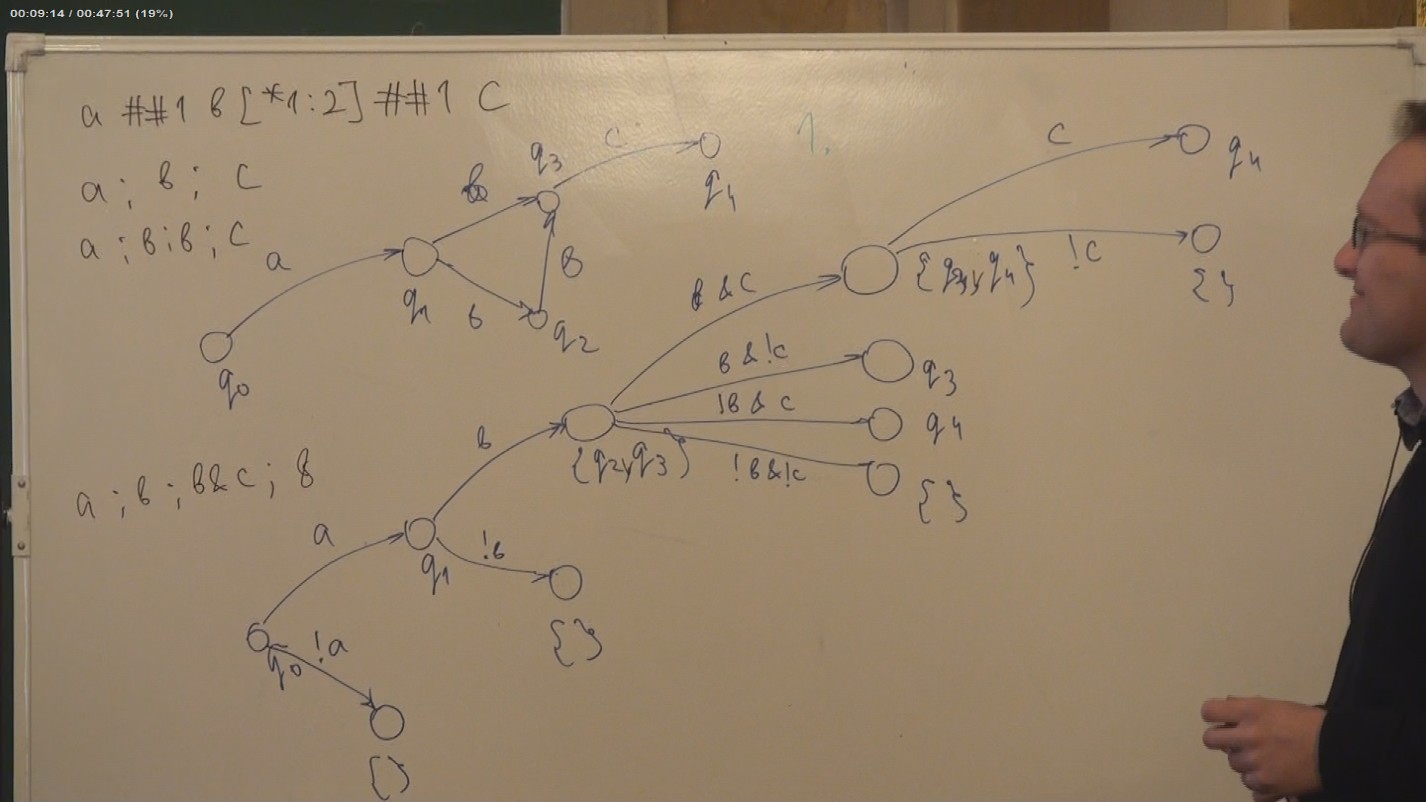 00:09:14 / 00:47:51 (19%)
a ##1 b [*1:2] ##1 c
a ; b ; c
a ; b ; b ; c
a
q0
q1
b
q3
b
b
q2
c
q4
1.
a ; b ; b&c ; b
q0
a
!a
{}
q1
b
!b
{}
{q2, q3}
b & c
b & !c
q3
!b & c
q4
!b&!c
{}
c
q4
!c
{}